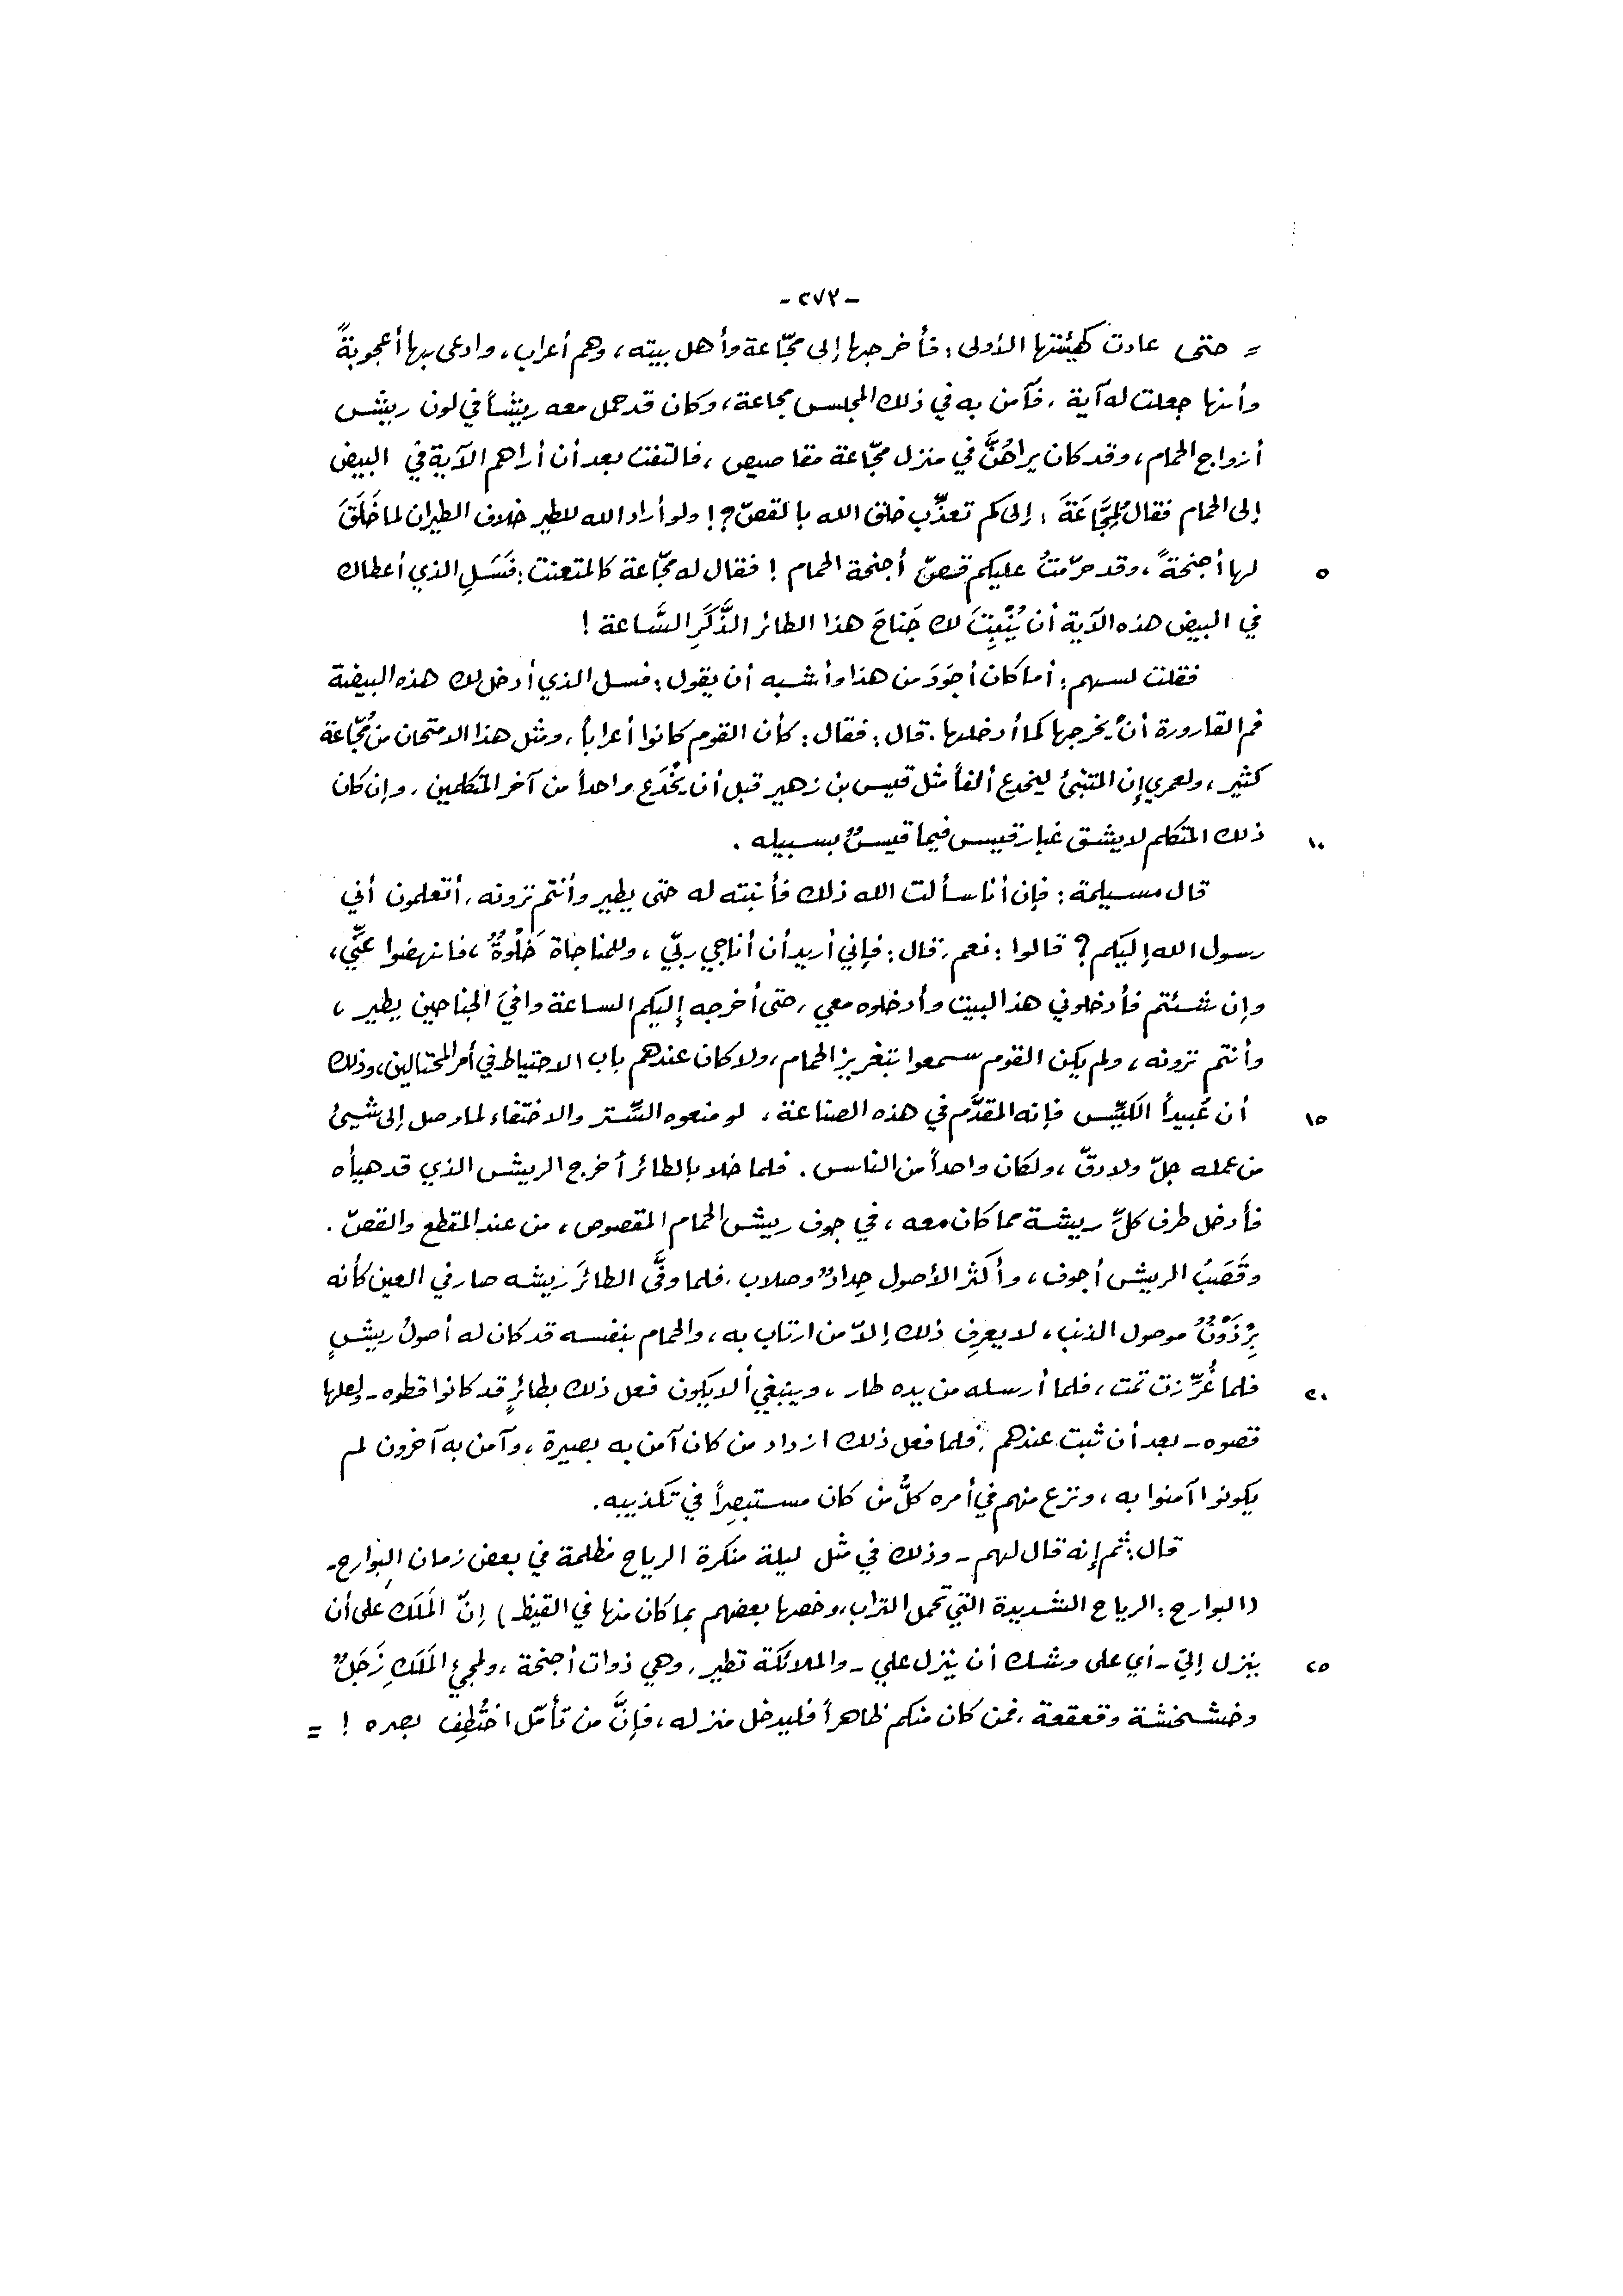 - ٢٧٢ -
= حتى عادت كهيئتها الأولى؛ فأخرجها إلى مجّاعة وأهل بيته، وهم أعراب، وادعى بها أعجوبةً
وأنها جعلت له آية. فآمن به في ذلك المجلس مجاعة، وكان قد حمل معه ريشاً في لون ريش
أزواج الحمام، وقد كان يراهُنَّ في منزل مجّاعة مقاصيص، فالتفت بعد أن أراهم الآية في البيض
إلى الحمام فقال لمُجَّاعَةَ: إلى كم تعذّب خلق الله بالقصّ؟! ولو أراد الله للطير خلاف الطيران لما خَلَقَ
لها أجنحةً، وقد حرّمتُ عليكم قصّ أجنحة الحمام! فقال له مجّاعة كالمتعنت: فَسَلِ الذي أعطاك ٥
في البيض هذه الآية أن يُنْبِتَ لك جَناحَ هذا الطائر الذَّكَرِ السَّاعة!
فقلت لسهم: أما كان أجوَدَ من هذا وأشبه أن يقول: فسل الذي أدخل لك هذه البيضة
فم القارورة أن يخرجها كما أدخلها. قال: فقال: كأن القوم كانوا أعراباً، ومثل هذا الامتحان من مُجّاعة
كثير، ولعمري إن المتنبئ ليخدع ألفاً مثل قيس بن زهير قبل أن يَخْدَع واحداً من آخر المتكلمين، وإن كان
ذلك المتكلم لا يشق غبار قيس فيما قيسٌ بسبيله. ١٠
قال مسيلمة: فإن أنا سألت الله ذلك فأنبته له حتى يطير وأنتم ترونه، أتعلمون أني
رسول الله إليكم؟ قالوا: نعم. قال: فإني أريد أن أناجي ربّي، وللمناجاة خَلْوةٌ، فانهضوا عنّي،
وإن شئتم فأدخلوني هذا البيت وأدخلوه معي، حتى أخرجه إليكم الساعة وافيَ الجناحين يطير،
وأنتم ترونه، ولم يكن القوم سمعوا بتغريز الحمام، ولا كان عندهم باب الاحتياط في أمر المحتالين، وذلك
أن عُبيداً الكيّس فإنه المقدَّم في هذه الصناعة، لو منعوه السِّتر والاختفاء لما وصل إلى شيئ ١٥
من عمله جلّ ولا دقّ، ولكان واحداً من الناس. فلما خلا بالطائر أخرج الريش الذي قد هيأه
فأدخل طرف كلّ ريشة مما كان معه، في جوف ريش الحمام المقصوص، من عند المقطع والقصّ.
وقَصَبُ الريش أجوف، وأكثر الأصول حِدادٌ وصلاب. فلما وفَّى الطائرَ ريشه صار في العين كأنه
بِرْذَوْنٌ موصول الذنب، لا يعرِف ذلك إلاّ من ارتاب به، والحمام بنفسه قد كان له أصولُ ريشٍ
فلما غُرّزت تمت، فلما أرسله من يده طار، وينبغي ألا يكون فعل ذلك بطائرٍ قد كانوا قطوه - ولعلها ٢٠
قصوه - بعد أن ثبت عندهم. فلما فعل ذلك ازداد من كان آمن به بصيرة، وآمن به آخرون لم
يكونوا آمنوا به، ونزع منهم في أمره كلُّ من كان مستبصِراً في تكذيبه.
قال: ثم إنه قال لهم - وذلك في مثل ليلة منكرة الرياح مظلمة في بعض زمان البوارح -
(البوارح: الرياح الشديدة التي تحمل التراب، وخصها بعضهم بما كان منها في القيظ) إنّ المَلَك على أن
ينزل إليّ - أي على وشك أن ينزل علي - والملائكة تطير، وهي ذوات أجنحة، ولمجيءِ المَلَكِ زَجَلٌ ٢٥
وخشخشة وقعقعة، فمن كان منكم ظاهراً فليدخل منزله، فإنَّ من تأمّل اختُطِف بصره! =